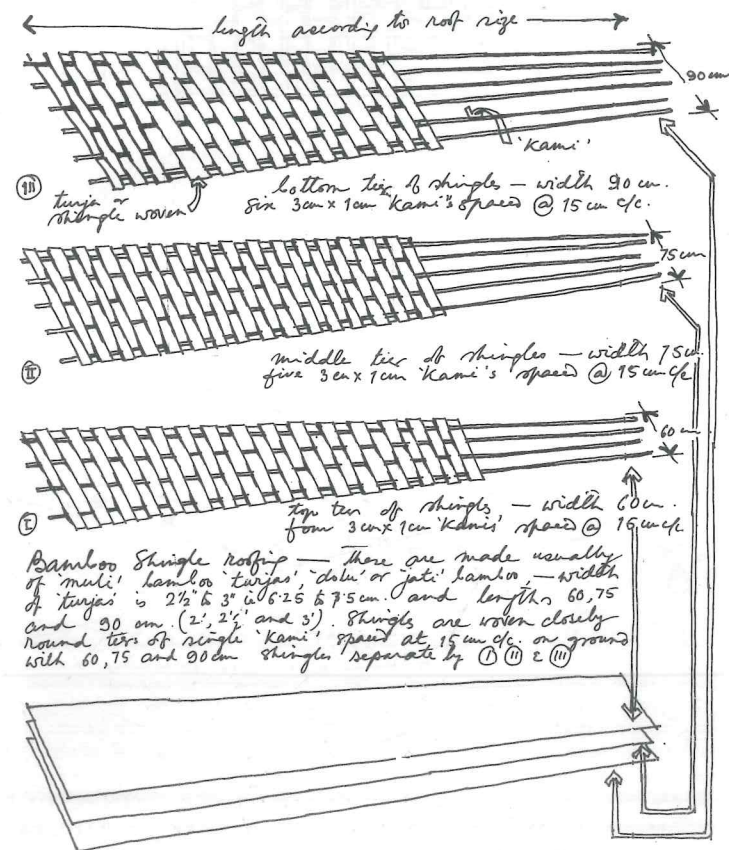 length according to roof size
90 cm
'Kami'
III
turja or
shingle woven
bottom tier of shingles — width 90 cm.
Six 3cm x 1cm 'Kami's spaced @ 15 cm c/c.
75 cm
middle tier of shingles — width 75 cm.
five 3cm x 1cm 'Kami's spaced @ 15 cm c/c
II
60 cm
top tier of shingles, — width 60 cm.
four 3cm x 1cm 'Kamis' spaced @ 15 cm c/c
I
Bamboo Shingle roofing — These are made usually
of 'muli' bamboo 'turjas', 'dolu' or 'jati' bamboo, — width
of 'turjas' is 2½" to 3" ie 6.25 to 7.5 cm. and lengths 60, 75
and 90 cm. (2', 2½' and 3'). Shingles are woven closely
round tiers of single 'Kami' spaced at 15 cm c/c. on ground
with 60, 75 and 90 cm shingles separate by I II & III